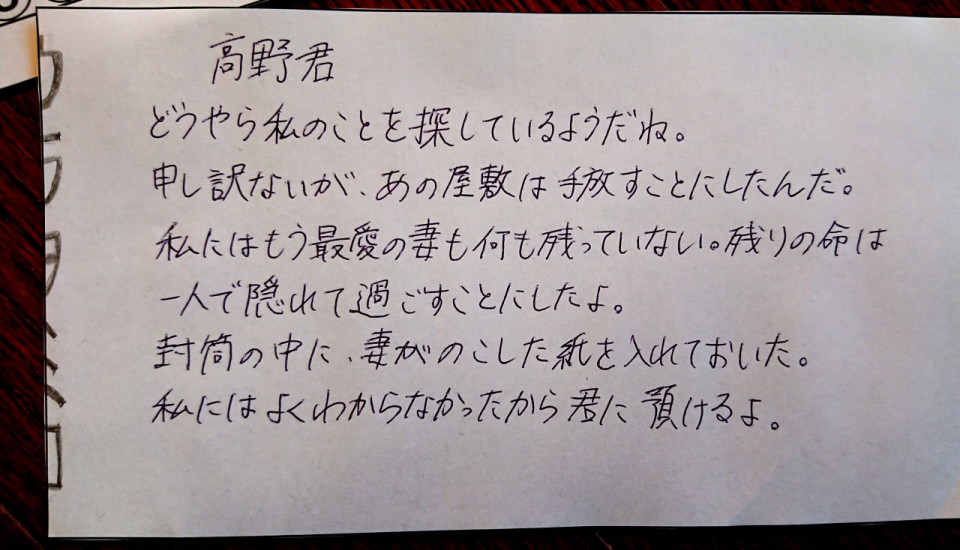 高野君
どうやら私のことを探しているようだね。
申し訳ないが、あの屋敷は手放すことにしたんだ。
私にはもう最愛の妻も何も残っていない。残りの命は
一人で隠れて過ごすことにしたよ。
封筒の中に、妻がのこした紙を入れておいた。
私にはよくわからなかったから君に預けるよ。